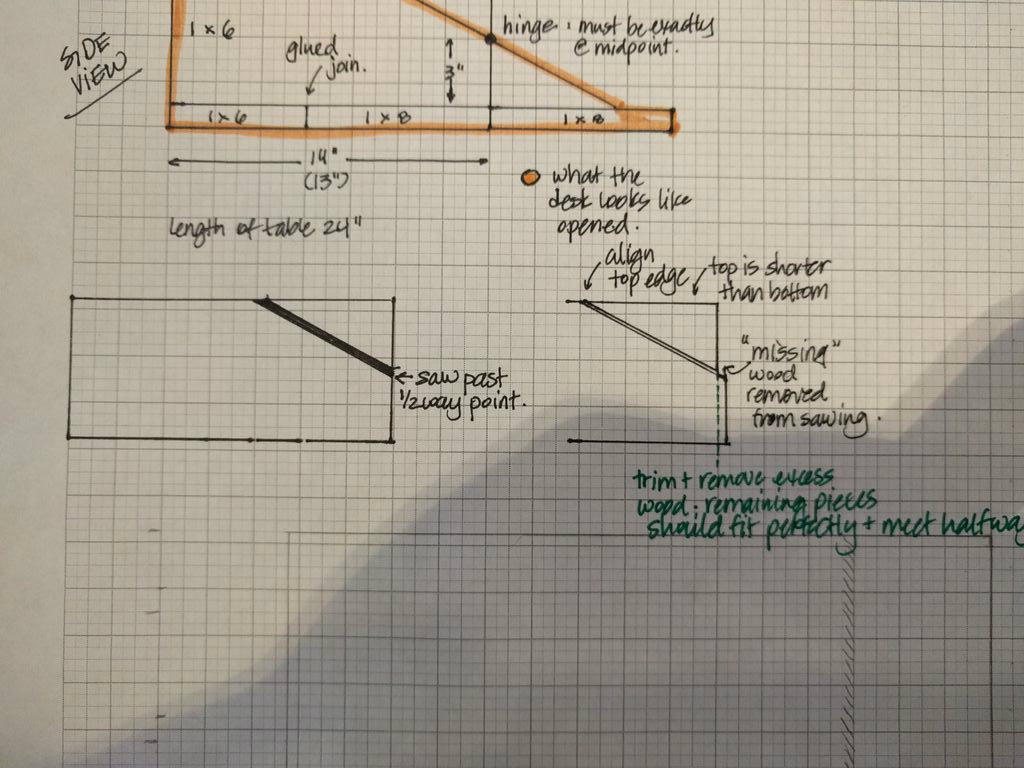 SIDE
VIEW
1 x 6
glued
join.
3"
hinge: must be exactly
@ midpoint.
1 x 6
1 x 8
1 x 8
14"
(13")
what the
desk looks like
opened.
length of table 24"
align
top edge
top is shorter
than bottom
saw past
1/2way point.
"missing"
wood
removed
from sawing.
trim + remove excess
wood: remaining pieces
should fit perfectly + meet halfway